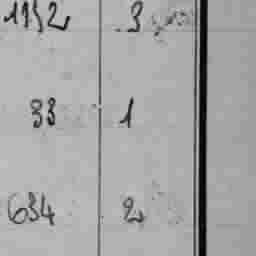 1132 3
33 1
634 2